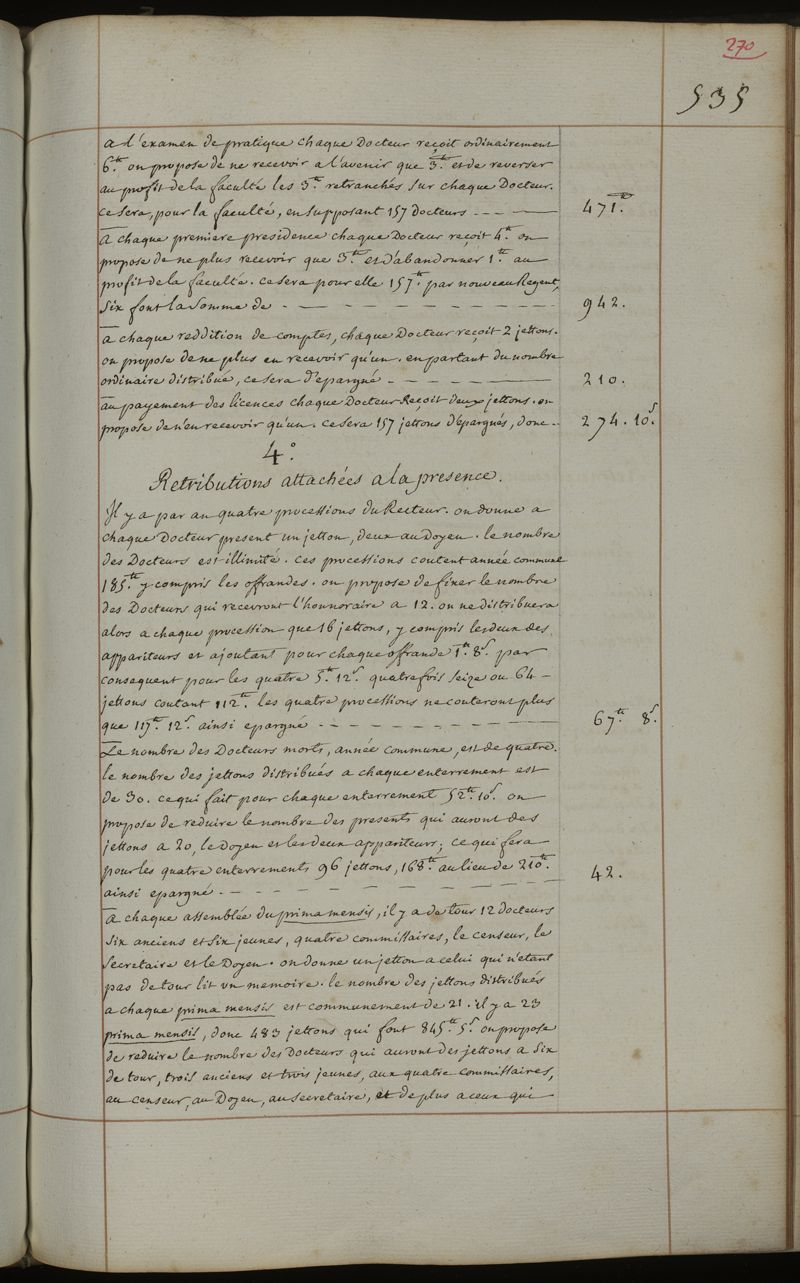 270
535
a l'examen de pratique chaque Docteur reçoit ordinairement
6.tt on propose de ne recevoir a l'avenir que 3.tt et de reverser
au profit de la faculté les 3.tt retranchés sur chaque Docteur.
ce sera, pour la faculté, en supposant 157 docteurs - - - — 471.tt
a chaque premiere presidence chaque Docteur reçoit 4.tt on
propose de ne plus recevoir que 3.tt et d'abandonner 1.tt au
profit de la faculté. ce sera pour elle 157.tt par nouveau Regent,
six font la somme de - — — — — — — — 942.
a chaque reddition de comptes, chaque Docteur reçoit 2 jettons.
on propose de ne plus en recevoir qu'un. en partant du nombre
ordinaire distribué, ce sera d'epargné - — — — — — 210.
au payement des licences chaque Docteur Reçoit deux jettons. on
propose de n'en recevoir qu'un. ce sera 157 jettons d'epargnés, donc - 274. 10.s
4.°
Retributions attachées a la presence.
Il y a par an quatre processions du Recteur. on donne a
chaque Docteur present un jetton, deux au Doyen. le nombre
des Docteurs est illimité. ces processions coutent année commune
185.tt y compris les offrandes. on propose de fixer le nombre
des Docteurs qui recevront l'honnoraire a 12. on ne distribuera
alors a chaque procession que 16 jettons, y compris les deux des
appariteurs et ajoutant pour chaque offrande 1.tt 8.s par
consequent pour les quatre 5.tt 12.s quatre fois seize ou 64 -
jettons coutant 112.tt les quatre processions ne couteront plus
que 117.tt 12.s ainsi epargné - — — — — — — 67.tt 8.s
Le nombre des Docteurs morts, année commune, est de quatre.
le nombre des jettons distribués a chaque enterrement est
de 30. ce qui fait pour chaque enterrement 52.tt 10.s on
propose de reduire le nombre des presents qui auront des
jettons a 20, le Doyen et les deux appariteurs; ce qui fera
pour les quatre enterrements 96 jettons, 168.tt au lieu de 210.tt
ainsi epargné - — — — — — — — — 42.
a chaque assemblée du prima mensis, il y a de tour 12 docteurs
six anciens et six jeunes, quatre commissaires, le censeur, le
secretaire et le Doyen. on donne un jetton a celui qui n'etant
pas de tour lit un memoire. le nombre des jettons distribués
a chaque prima mensis est communement de 21. il y a 23
prima mensis, donc 483 jettons qui font 845.tt 5.s on propose
de reduire le nombre des Docteurs qui auront des jettons a six
de tour, trois anciens et trois jeunes, aux quatre commissaires,
au censeur, au Doyen, au secretaire, et de plus a ceux qui